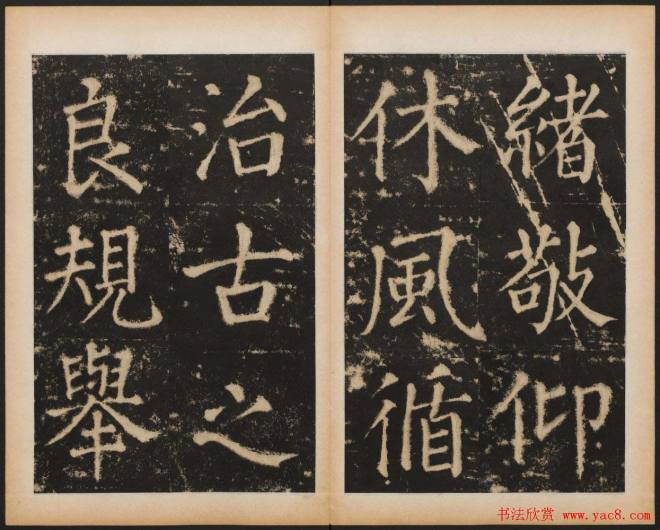 緒敬仰
休風循
治古之
良規舉
书法欣赏 www.yac8.com